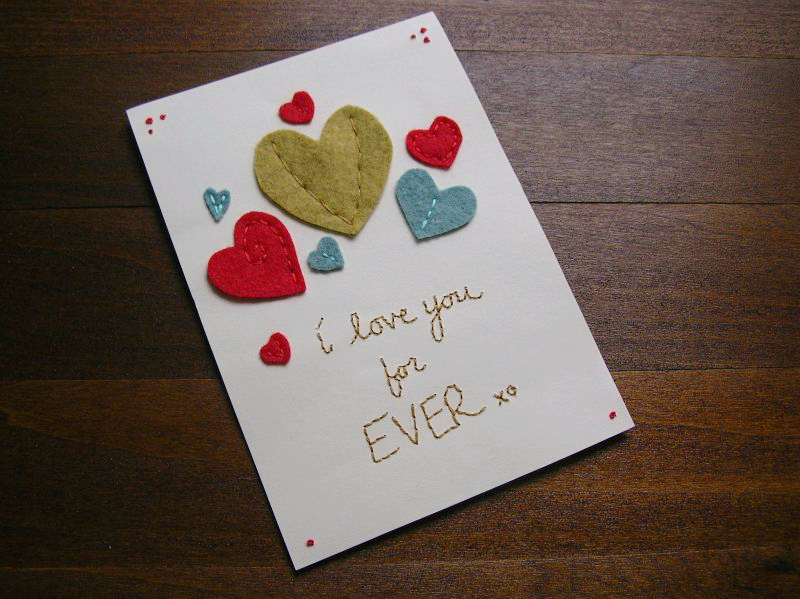 i love you
for
EVER xo